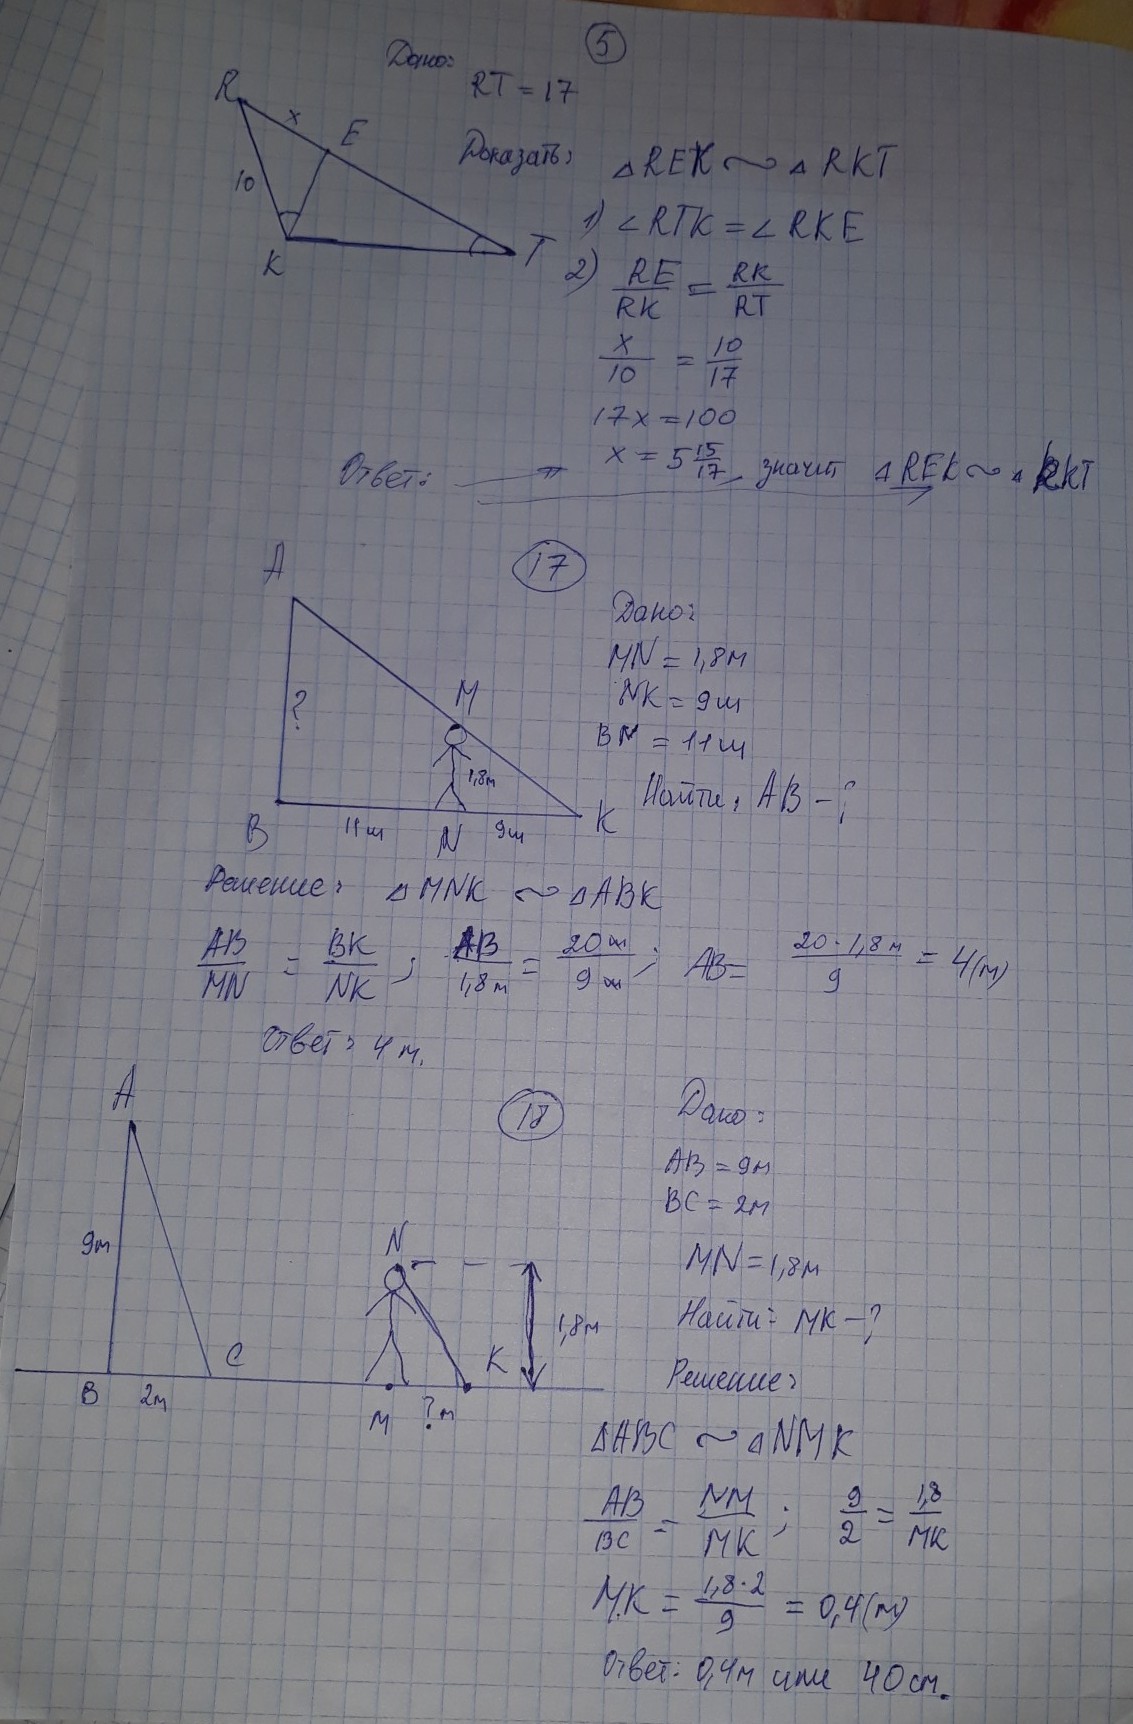 5
Дано:
RT = 17
R
x
E
10
K
T
Доказать: △REK ~ △RKT
1) ∠RTK = ∠RKE
2) RE/RK = RK/RT
x/10 = 10/17
17x = 100
x = 5 15/17, значит △REK ~ △RKT
Ответ:
17
A
?
M
1,8м
B
11ш
N
9ш
K
Дано:
MN = 1,8м
NK = 9ш
BN = 11ш
Найти: AB - ?
Решение: △MNK ~ △ABK
AB/MN = BK/NK ; AB/1,8м = 20ш/9ш ; AB = 20·1,8м/9 = 4(м)
Ответ: 4 м.
18
A
9м
B
2м
C
N
1,8м
K
M
?м
Дано:
AB = 9м
BC = 2м
MN = 1,8м
Найти: MK - ?
Решение:
△ABC ~ △NMK
AB/BC = NM/MK ; 9/2 = 1,8/MK
MK = 1,8·2/9 = 0,4(м)
Ответ: 0,4м или 40см.